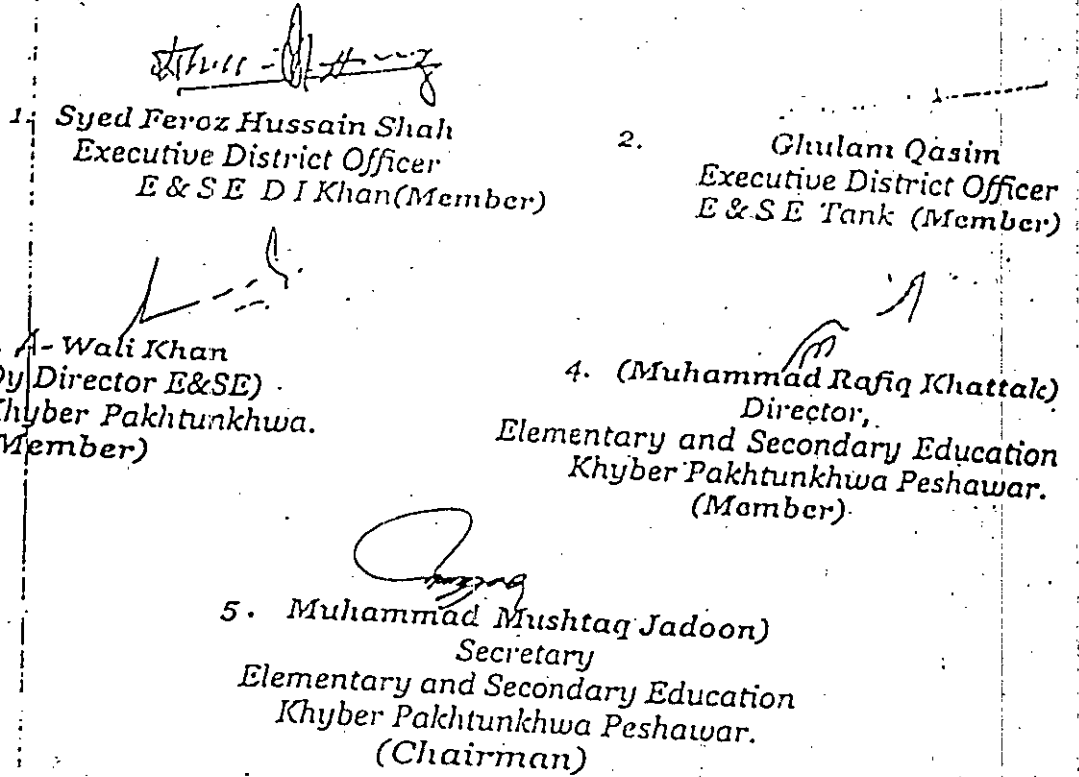 1. Syed Feroz Hussain Shah
Executive District Officer
E & S E D I Khan(Member)
2. Ghulam Qasim
Executive District Officer
E & S E Tank (Member)
A- Wali Khan
Dy Director E&SE)
Khyber Pakhtunkhwa.
Member)
4. (Muhammad Rafiq Khattak)
Director,
Elementary and Secondary Education
Khyber Pakhtunkhwa Peshawar.
(Member)
5. Muhammad Mushtaq Jadoon)
Secretary
Elementary and Secondary Education
Khyber Pakhtunkhwa Peshawar.
(Chairman)